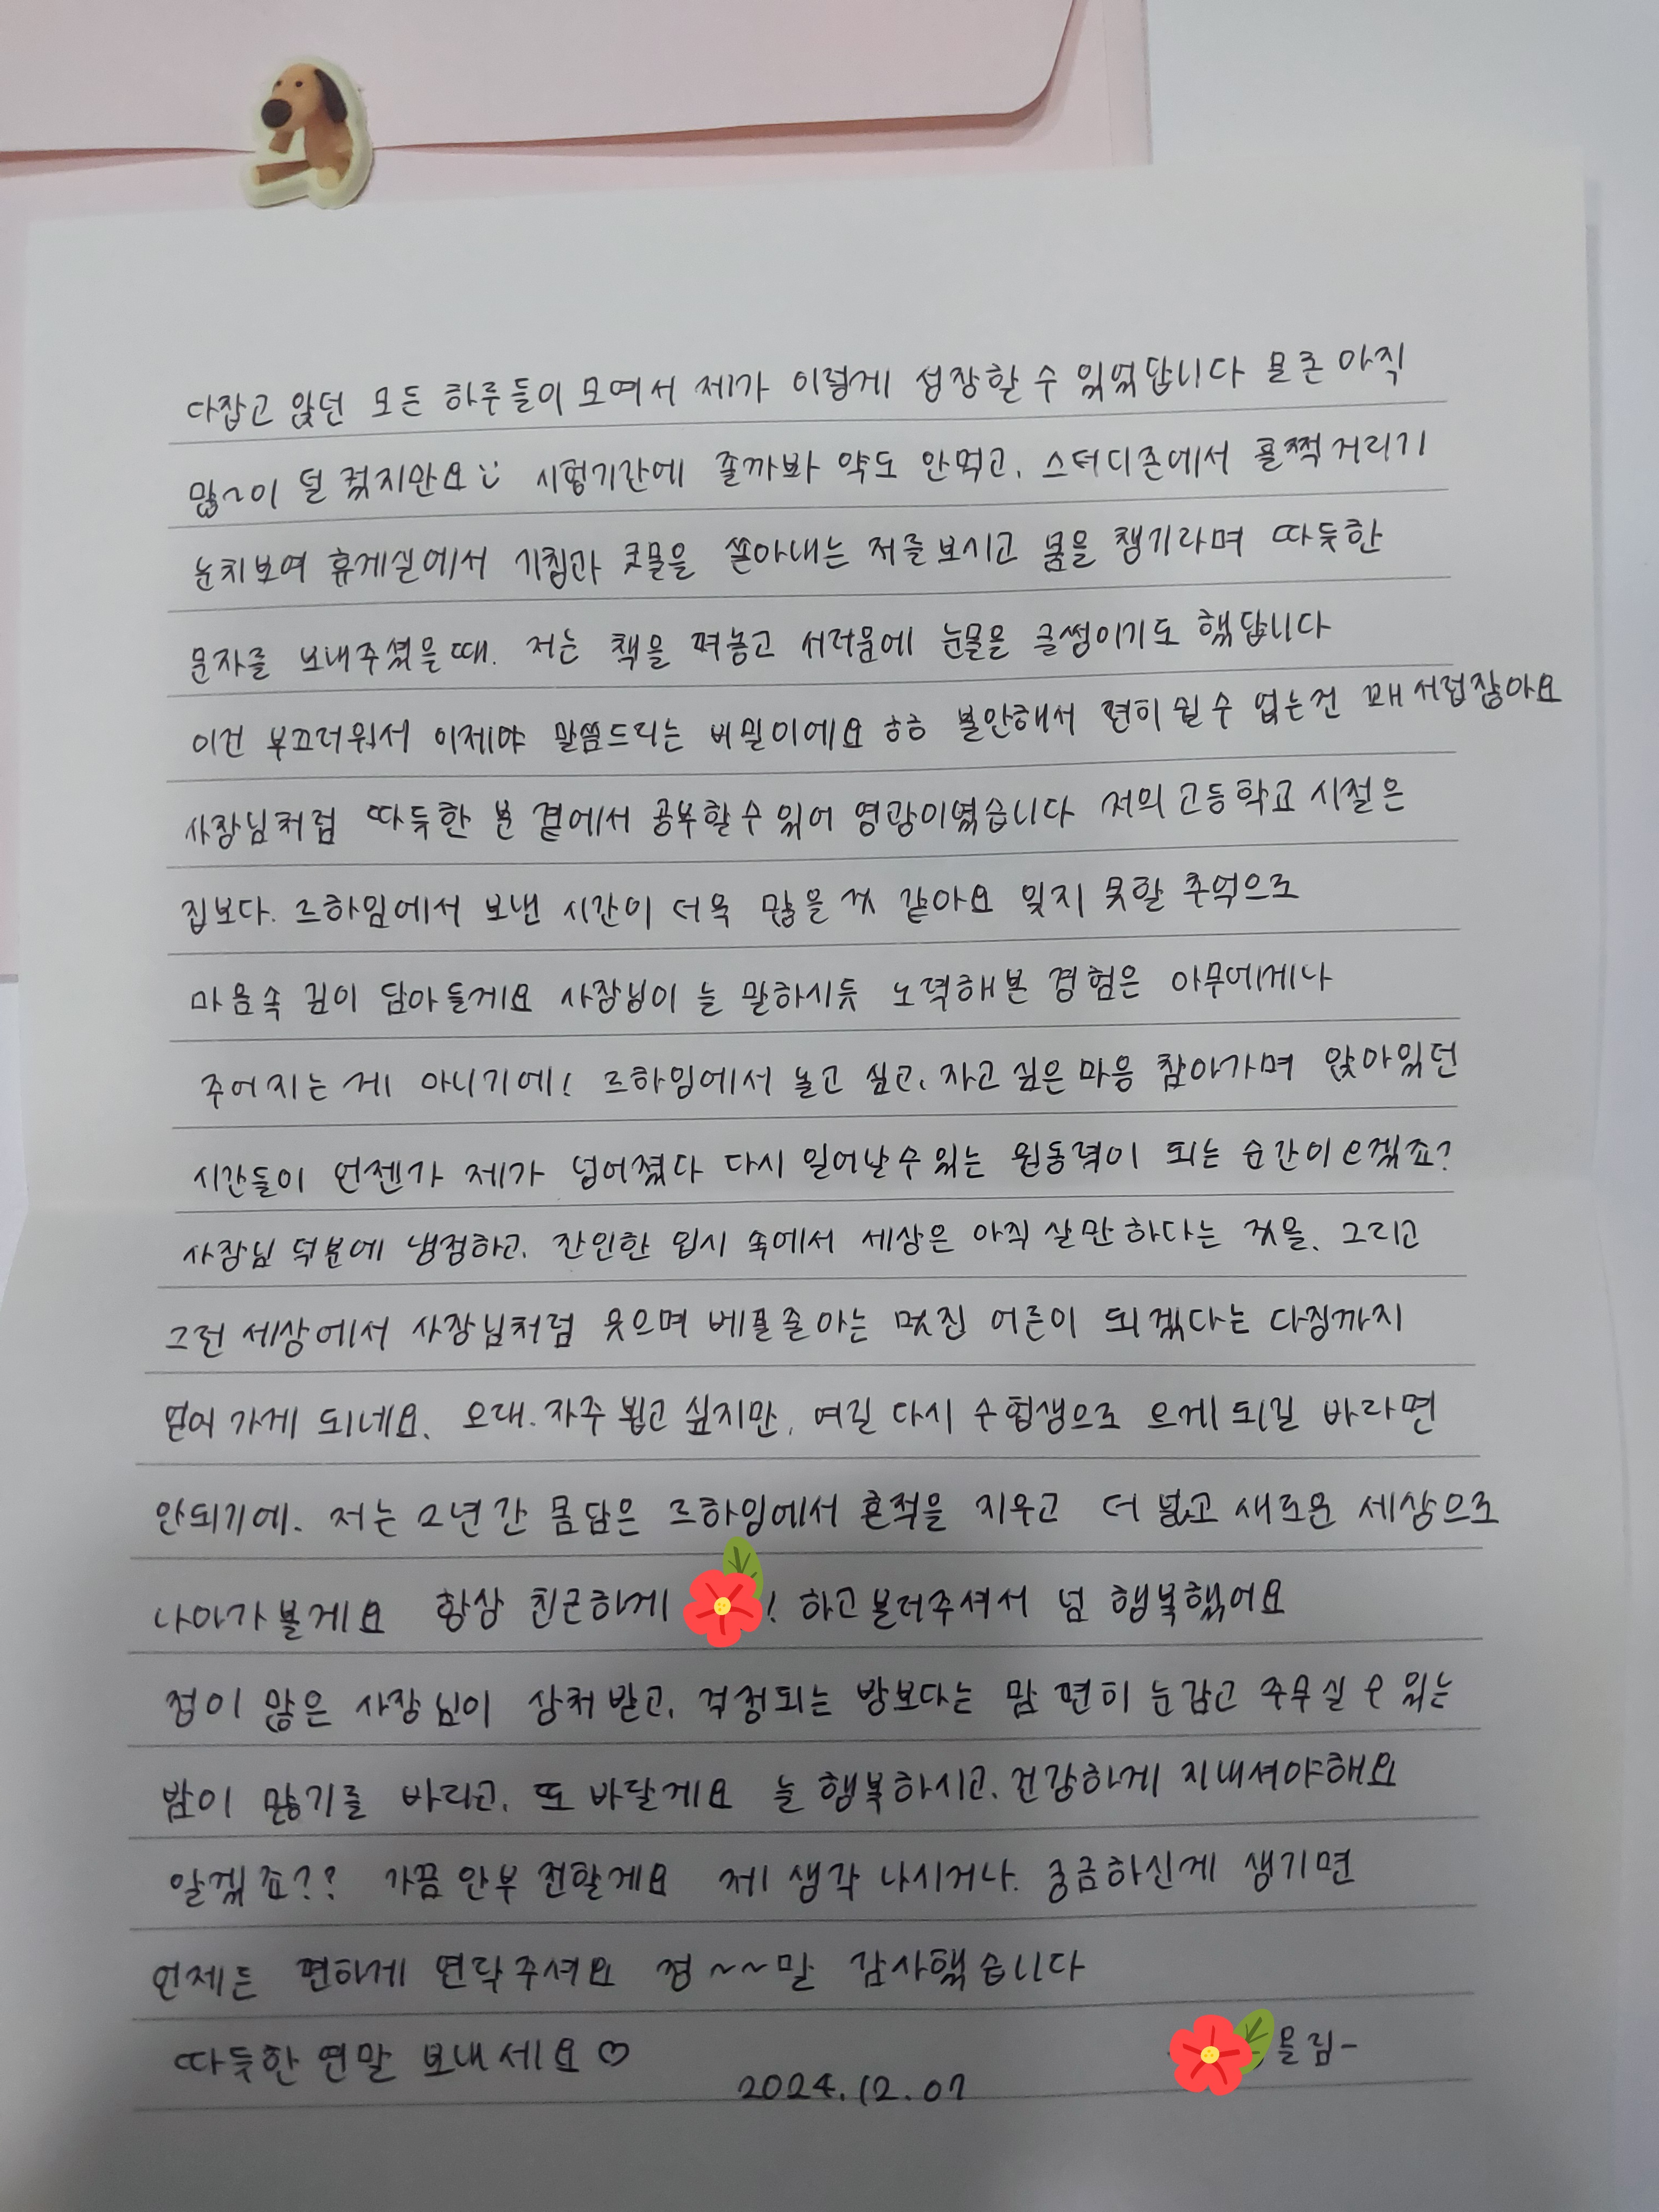 다잡고 앉던 모든 하루들이 모여서 제가 이렇게 성장할 수 있었답니다 물론 아직
많~이 덜 컸지만요 :) 시험기간에 졸까봐 약도 안먹고, 스터디존에서 훌쩍거리기
눈치보여 휴게실에서 기침과 콧물을 쏟아내는 저를 보시고 몸을 챙기라며 따듯한
문자를 보내주셨을 때, 저는 책을 펴놓고 서러움에 눈물을 글썽이기도 했답니다
이건 부끄러워서 이제야 말씀드리는 비밀이에요 ㅎㅎ 불안해서 편히 쉴 수 없는건 꽤 서럽잖아요
사장님처럼 따듯한 분 곁에서 공부할 수 있어 영광이였습니다 저의 고등학교 시절은
집보다, 르하임에서 보낸 시간이 더욱 많을 것 같아요 잊지 못할 추억으로
마음속 깊이 담아둘게요 사장님이 늘 말하시듯 노력해본 경험은 아무에게나
주어지는 게 아니기에! 르하임에서 놀고 싶고, 자고 싶은 마음 참아가며 앉아있던
시간들이 언젠가 제가 넘어졌다 다시 일어날 수 있는 원동력이 되는 순간이 오겠죠?
사장님 덕분에 냉정하고, 잔인한 입시 속에서 세상은 아직 살만하다는 것을, 그리고
그런 세상에서 사장님처럼 웃으며 베풀줄 아는 멋진 어른이 되겠다는 다짐까지
얻어 가게 되네요. 오래, 자주 뵙고 싶지만, 여길 다시 수험생으로 오게 되길 바라면
안되기에, 저는 2년간 몸담은 르하임에서 흔적을 지우고 더 넓고 새로운 세상으로
나아가 볼게요 항상 친근하게 ! 하고 불러주셔서 넘 행복했어요
정이 많은 사장님이 상처 받고, 걱정되는 밤보다는 맘 편히 눈감고 주무실 수 있는
밤이 많기를 바라고, 또 바랄게요 늘 행복하시고, 건강하게 지내셔야해요
알겠죠?? 가끔 안부 전할게요 제 생각 나시거나, 궁금하신게 생기면
언제든 편하게 연락주셔요 정~~말 감사했습니다
따듯한 연말 보내세요♡
올림-
2024.12.07